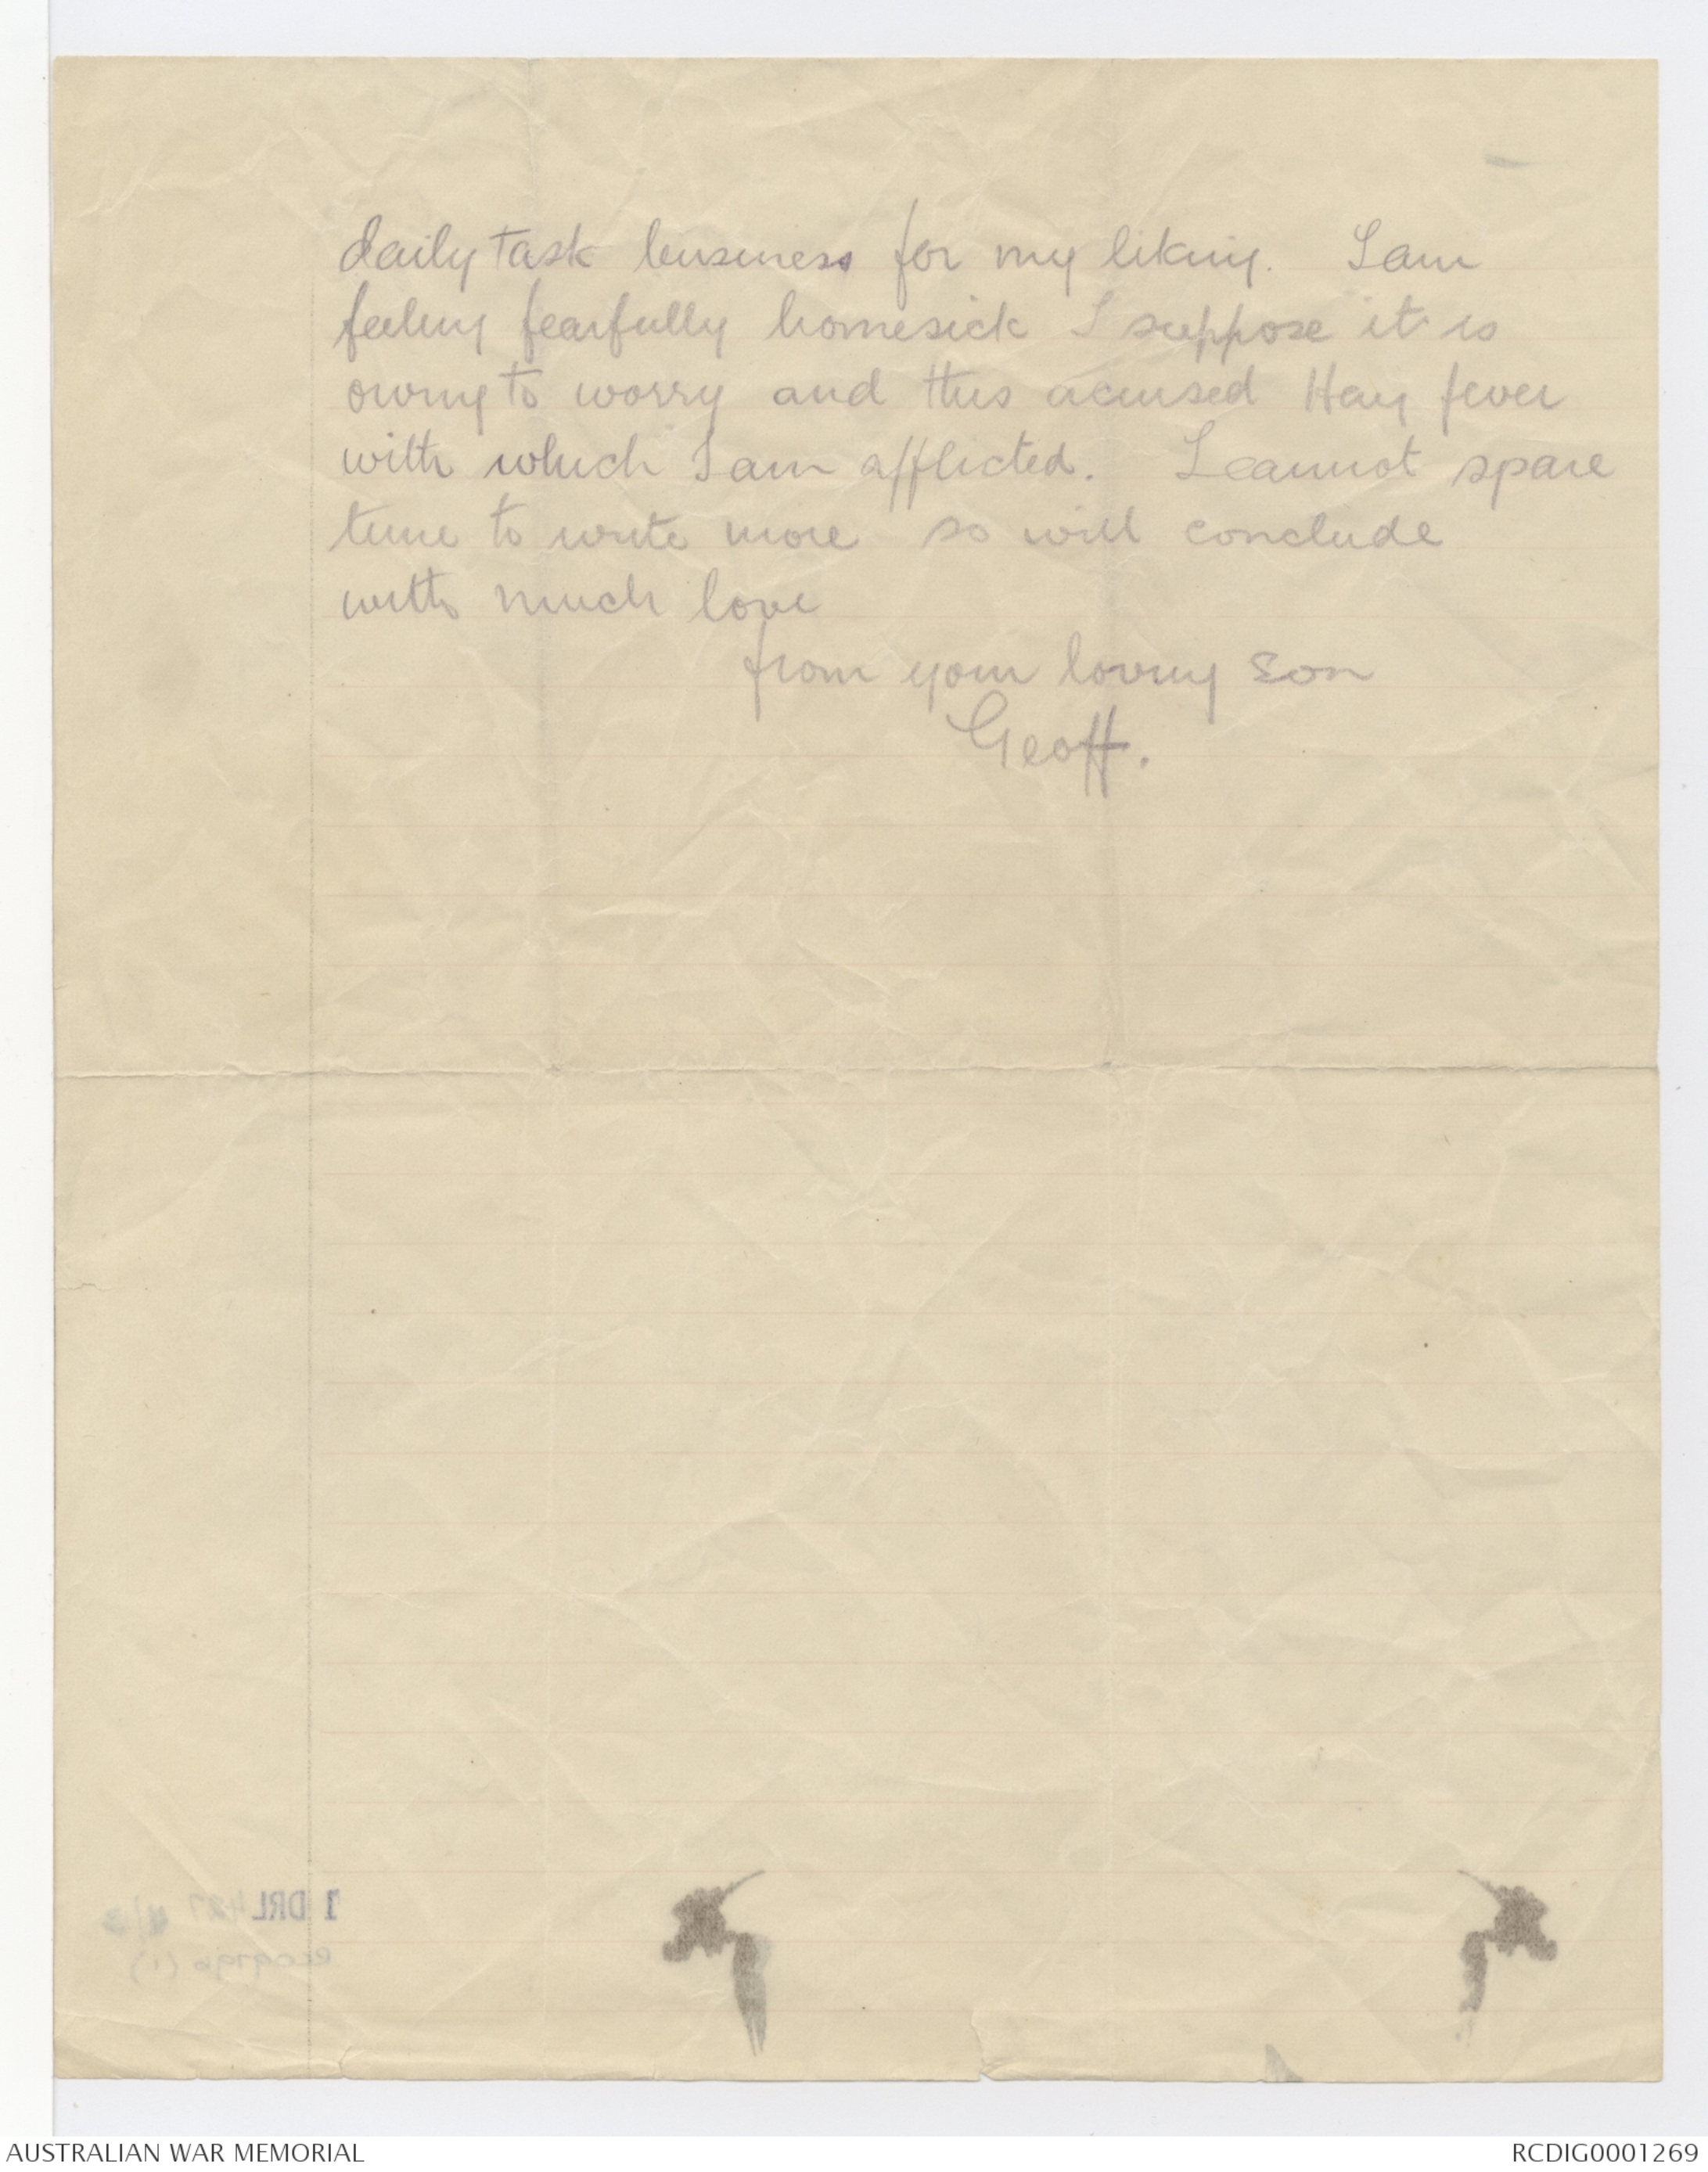 daily task business for my liking. I am
feeling fearfully homesick I suppose it is
owing to worry and this acursed Hay fever
with which I am afflicted. I cannot spare
time to write more so will conclude
with much love
from your loving son
Geoff.
1 DRL 427
AUSTRALIAN WAR MEMORIAL
RCDIG0001269